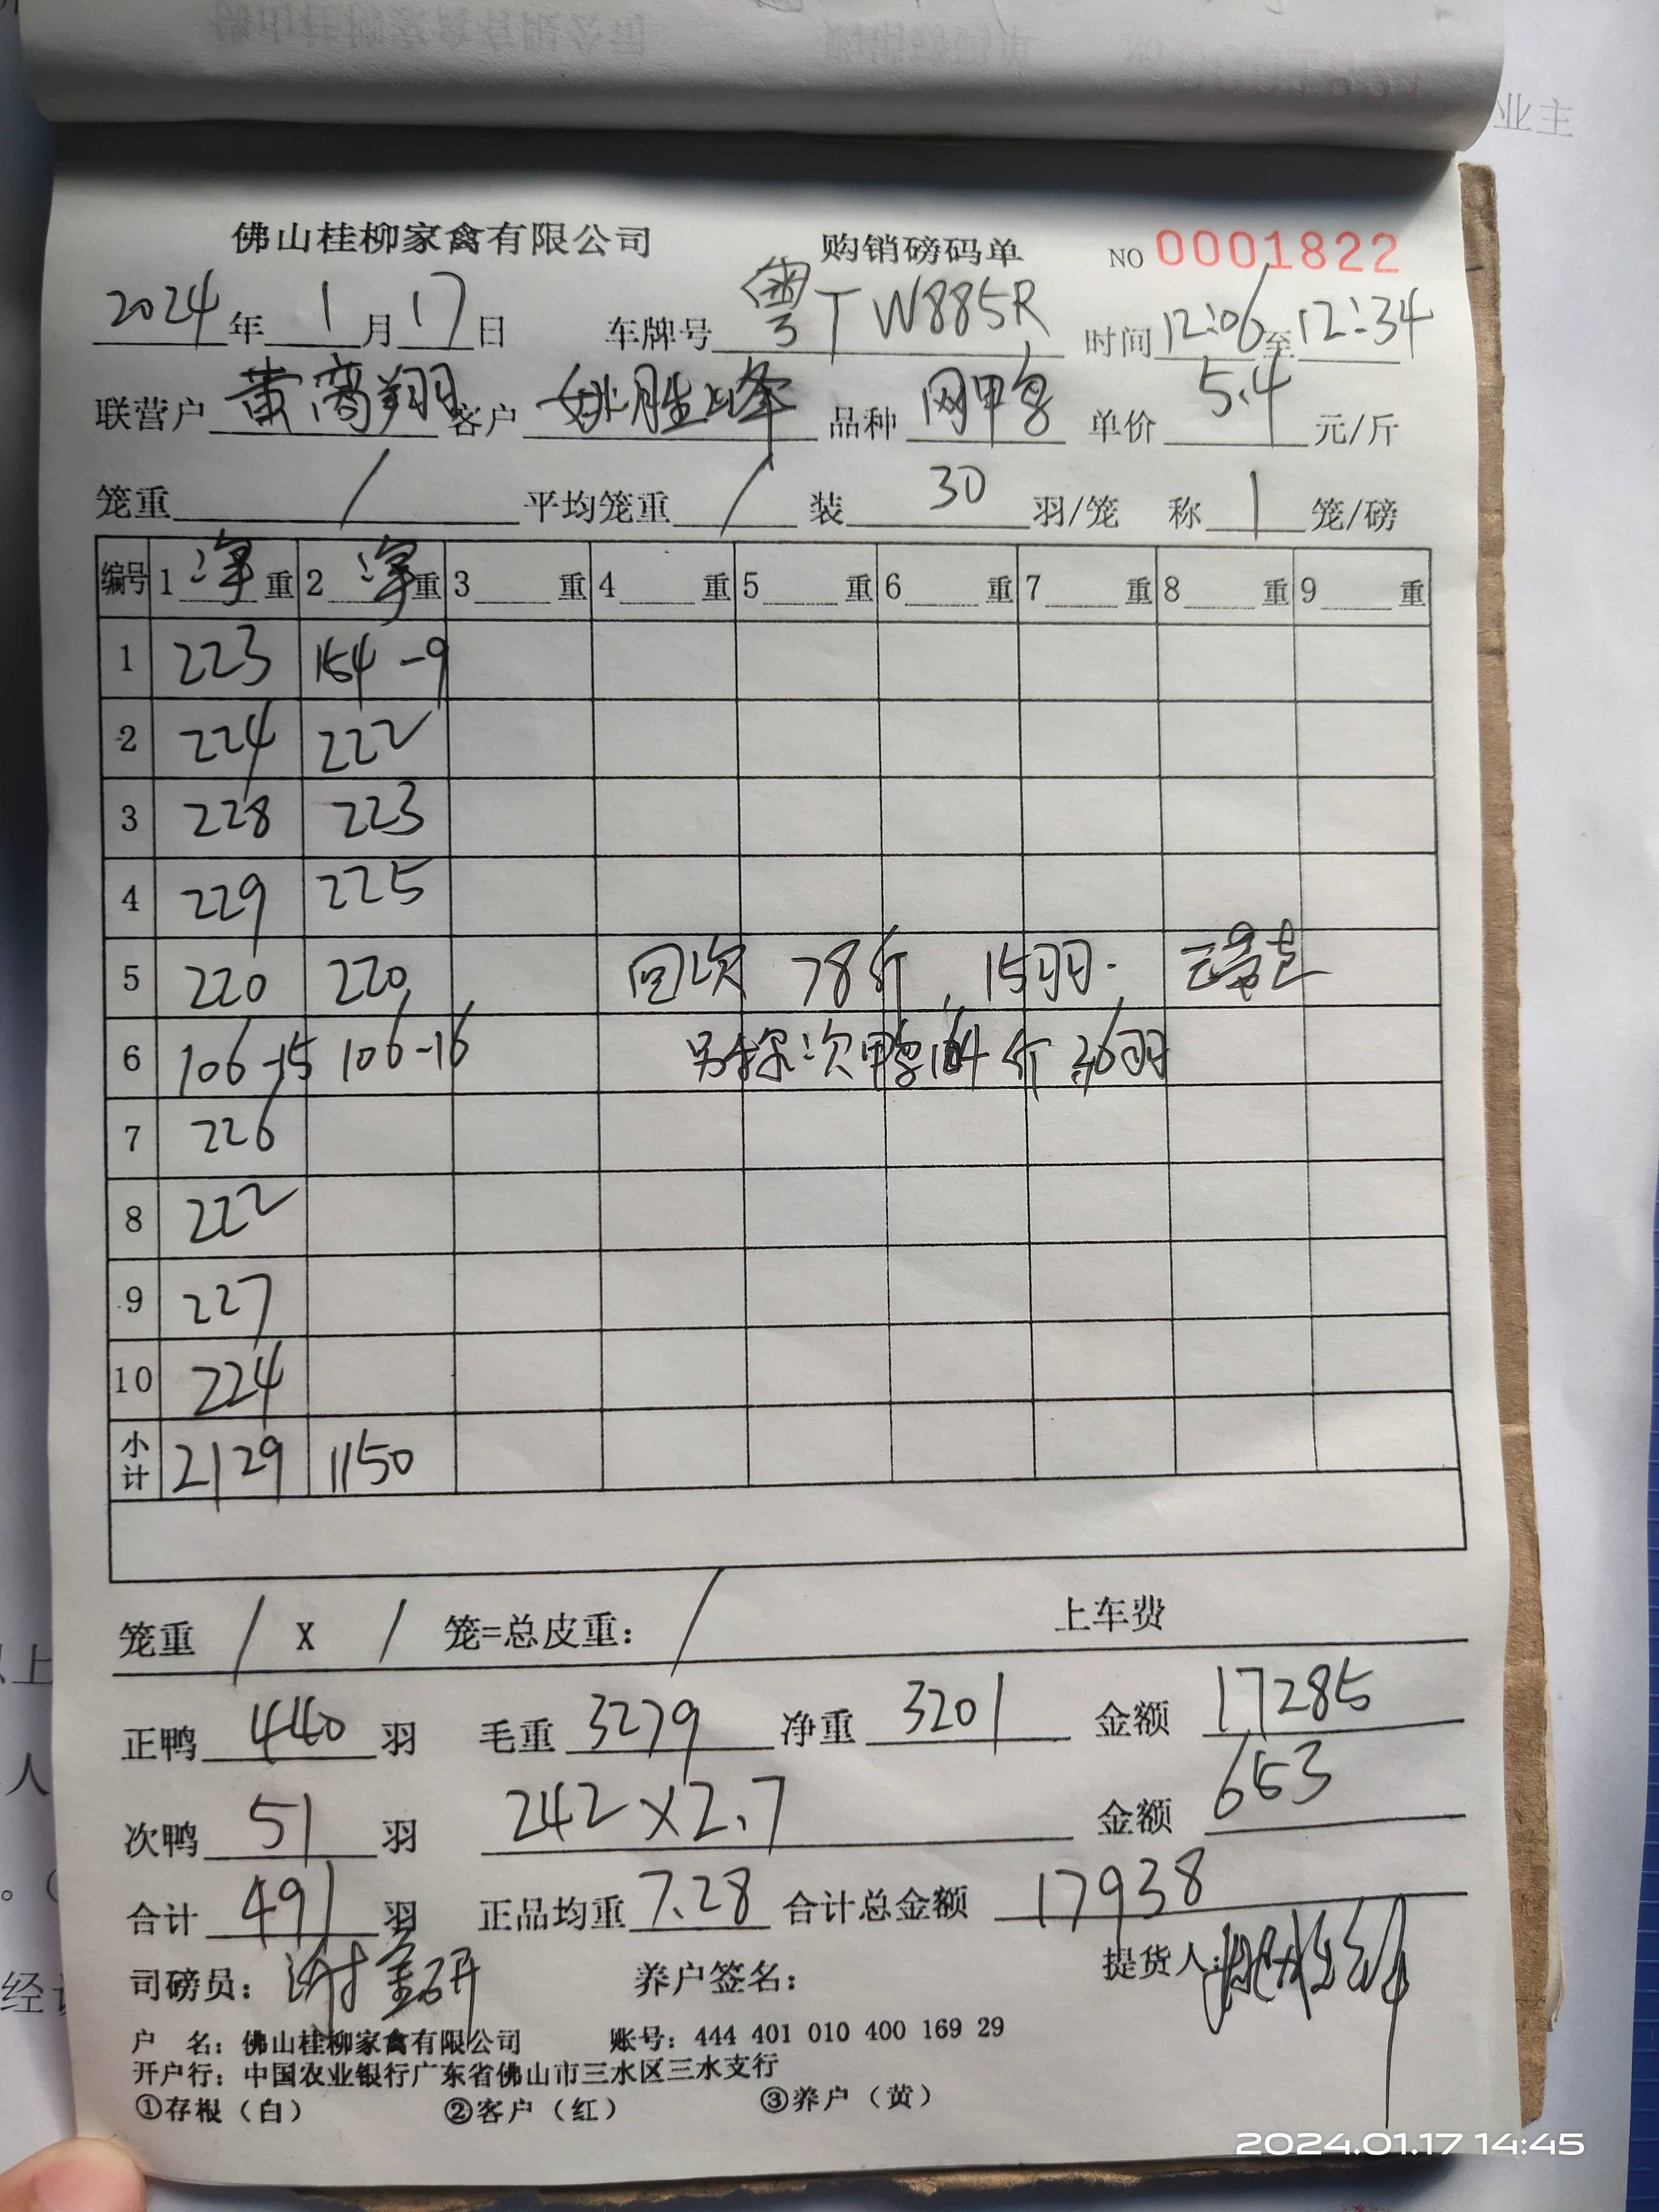 业主
佛山桂柳家禽有限公司 购销磅码单 NO 0001822
2024年 1月17日 车牌号 粤TW885R 时间12:06至12:34
联营户 黄高翔 客户 姚胜峰 品种 网甲鸭 单价 5.4 元/斤
笼重 / 平均笼重 / 装 30 羽/笼 称 1 笼/磅
编号 1 净 重 2 净 重 3 重 4 重 5 重 6 重 7 重 8 重 9 重
1 223 154-9
2 224 222
3 228 223
4 229 225
5 220 220 回次 78斤, 15羽.
6 106-15 106-16 另择次鸭164斤36羽
7 226
8 222
9 227
10 224
小计 2129 1150
笼重 / X / 笼=总皮重: / 上车费
正鸭 440 羽 毛重 3279 净重 3201 金额 17285
次鸭 51 羽 242×2.7 金额 653
合计 491 羽 正品均重 7.28 合计总金额 17938
司磅员: 谢金研 养户签名: 提货人:
户 名: 佛山桂柳家禽有限公司 账号: 444 401 010 400 169 29
开户行: 中国农业银行广东省佛山市三水区三水支行
①存根(白) ②客户(红) ③养户(黄)
2024.01.17 14:45